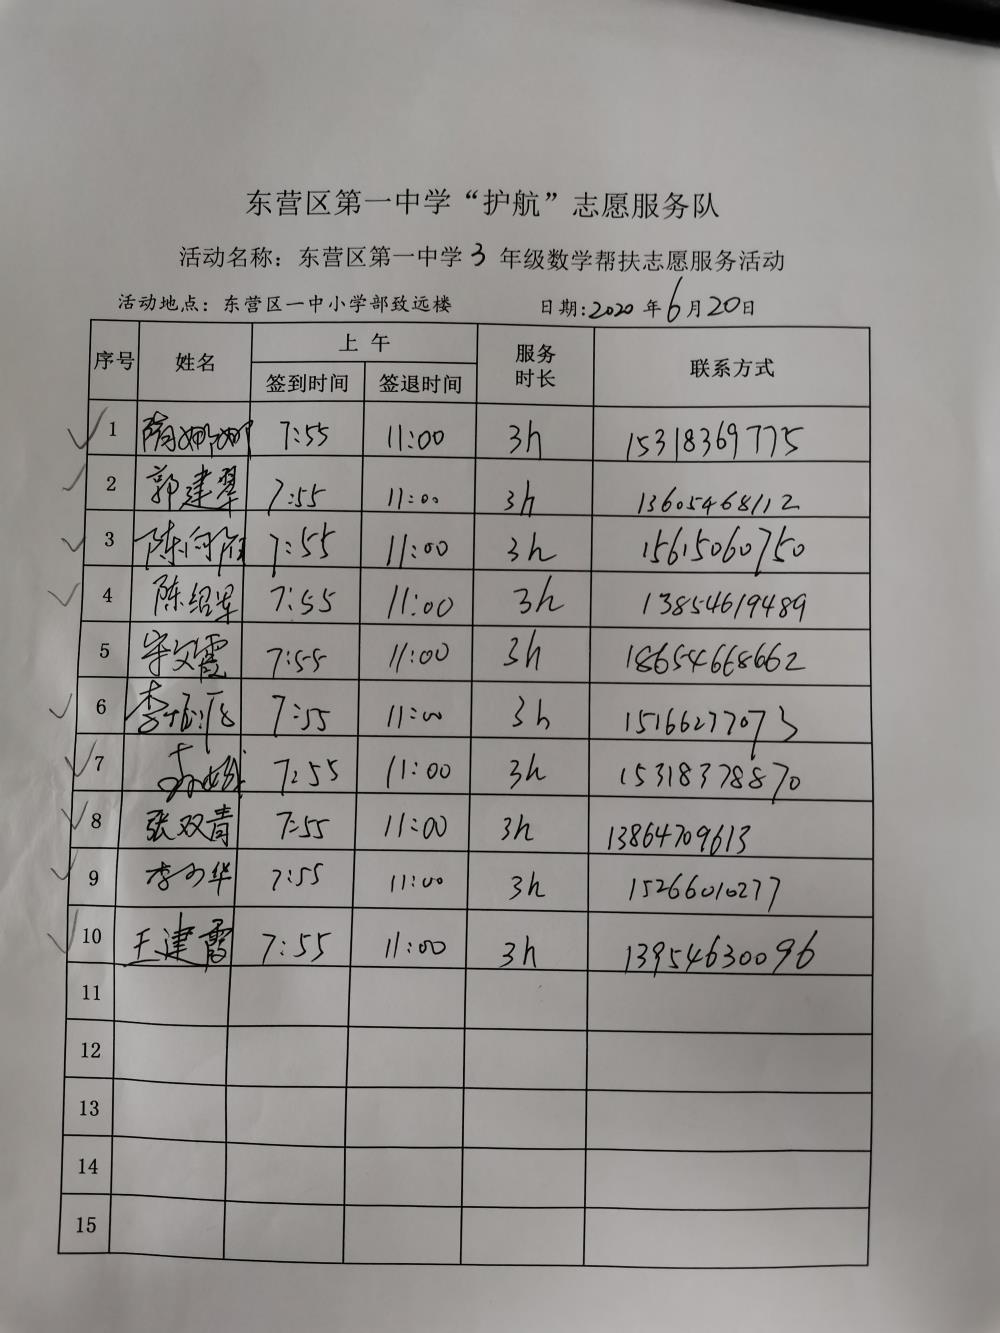 东营区第一中学“护航”志愿服务队
活动名称：东营区第一中学3年级数学帮扶志愿服务活动
活动地点：东营区一中小学部致远楼 日期：2020年6月20日
序号 姓名 上午 服务时长 联系方式
签到时间 签退时间
1 7:55 11:00 3h 15318369775
2 郭建翠 7:55 11:00 3h 13605468112
3 陈 7:55 11:00 3h 15615060750
4 陈绍军 7:55 11:00 3h 13854619489
5 宋文霞 7:55 11:00 3h 18654668662
6 李 7:55 11:00 3h 15166277073
7 7:55 11:00 3h 15318378870
8 张双青 7:55 11:00 3h 13864709613
9 李 华 7:55 11:00 3h 15266010277
10 王建雷 7:55 11:00 3h 13954630096
11
12
13
14
15